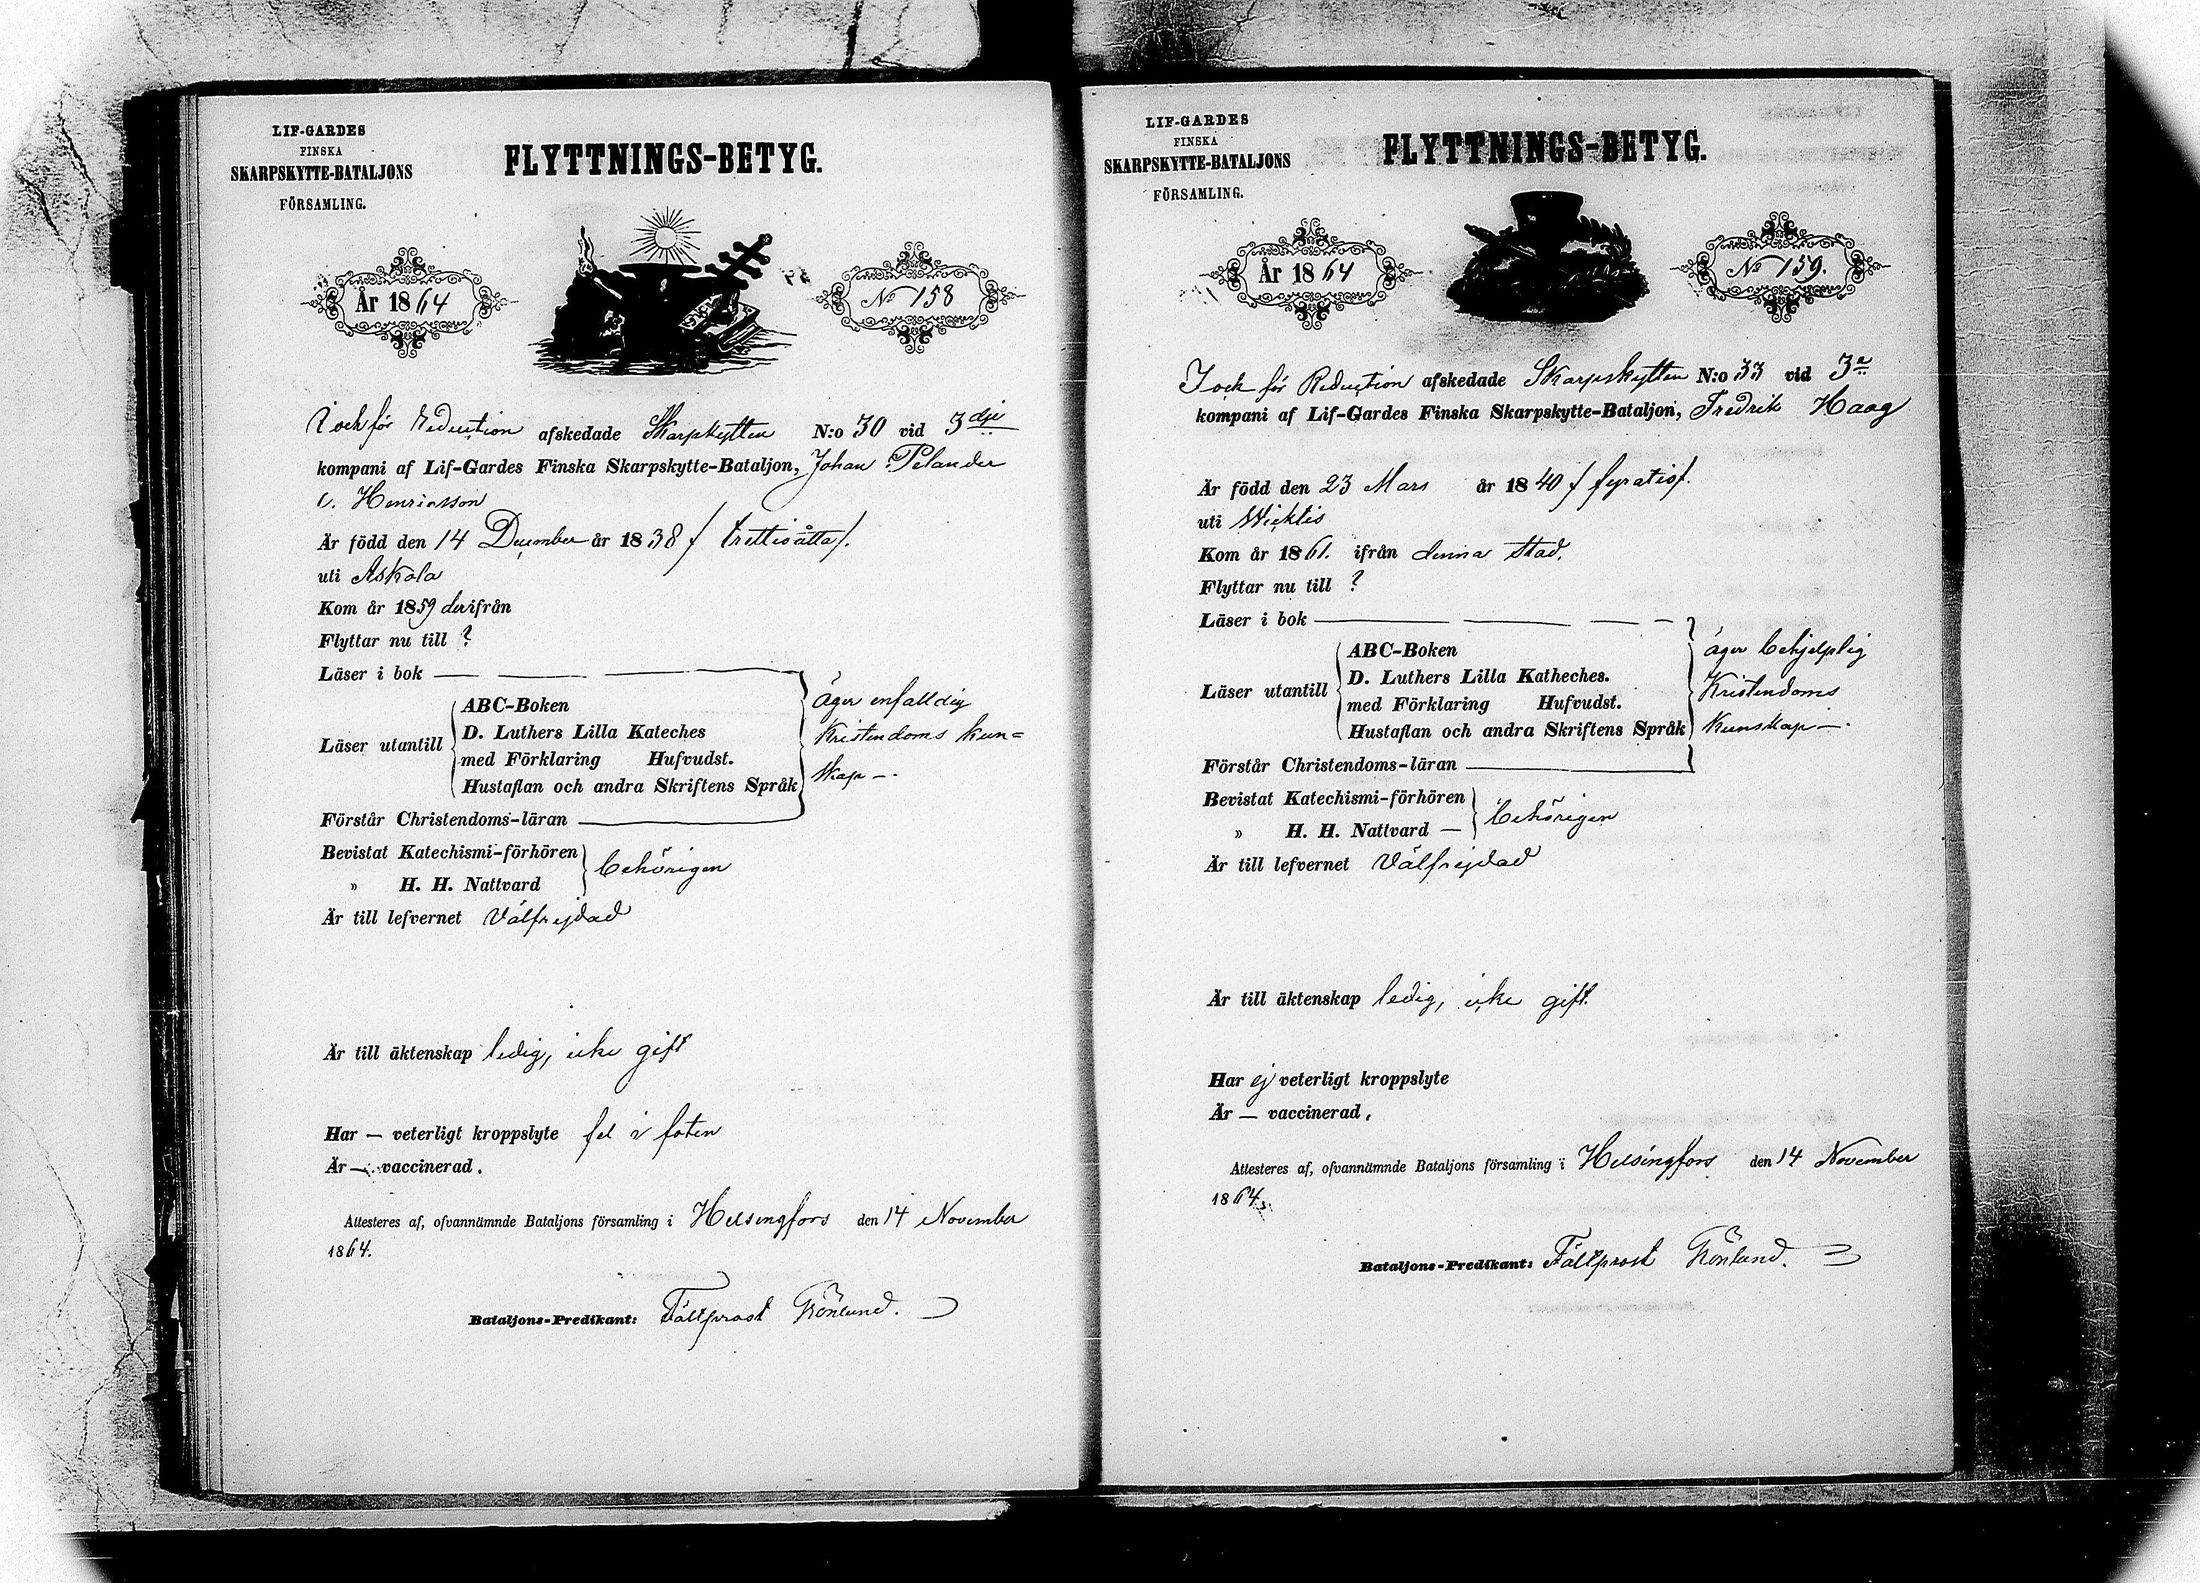 LIF-GARDES
FINSKA
SKARPSKYTTE-BATALJONS
FÖRSAMLING.
FLYTTNINGS-BETYG.
År 1864
No 158
I och för Reduction afskedade Skarpskytten N:o 30 vid 3dje
kompani af Lif-Gardes Finska Skarpskytte-Bataljon, Johan Pelander
Henricsson
Är född den 14 December år 1838 / trettioåtta /.
uti Askola
Kom år 1859 derifrån
Flyttar nu till ?
Läser i bok — — —
ABC-Boken
äger enfalldig
D. Luthers Lilla Kateches
Kristendoms kun=
Läser utantill
med Förklaring Hufvudst.
skap —.
Hustaflan och andra Skriftens Språk
Förstår Christendoms-läran —
Bevistat Katechismi-förhören
behörigen
" H. H. Nattvard
Är till lefvernet Välfrejdad
Är till äktenskap ledig, icke gift
Har — veterligt kroppslyte fel i foten
Är — vaccinerad.
Attesteres af, ofvannämnde Bataljons församling i Helsingfors den 14 November
1864.
Bataljons-Predikant: Fältprost Grönlund.
LIF-GARDES
FINSKA
SKARPSKYTTE-BATALJONS
FÖRSAMLING.
FLYTTNINGS-BETYG.
År 1864
No 159.
I och för Reduction afskedade Skarpskytten N:o 33 vid 3e
kompani af Lif-Gardes Finska Skarpskytte-Bataljon, Fredrik Haag
Är född den 23 Mars år 1840 / fyratio /.
uti Wichtis
Kom år 1861. ifrån denna stad.
Flyttar nu till ?
Läser i bok — — — —
ABC-Boken
äger behjelplig
D. Luthers Lilla Katheches.
Kristendoms
Läser utantill
med Förklaring Hufvudst.
Hustaflan och andra Skriftens Språk
Kunskap —.
Förstår Christendoms-läran —
Bevistat Katechismi-förhören
behörigen
" H. H. Nattvard —
Är till lefvernet Välfrejdad
Är till äktenskap ledig, icke gift.
Har ej veterligt kroppslyte
Är — vaccinerad.
Attesteres af, ofvannämnde Bataljons församling i Helsingfors den 14 November
1864.
Bataljons-Predikant: Fältprost Grönlund.